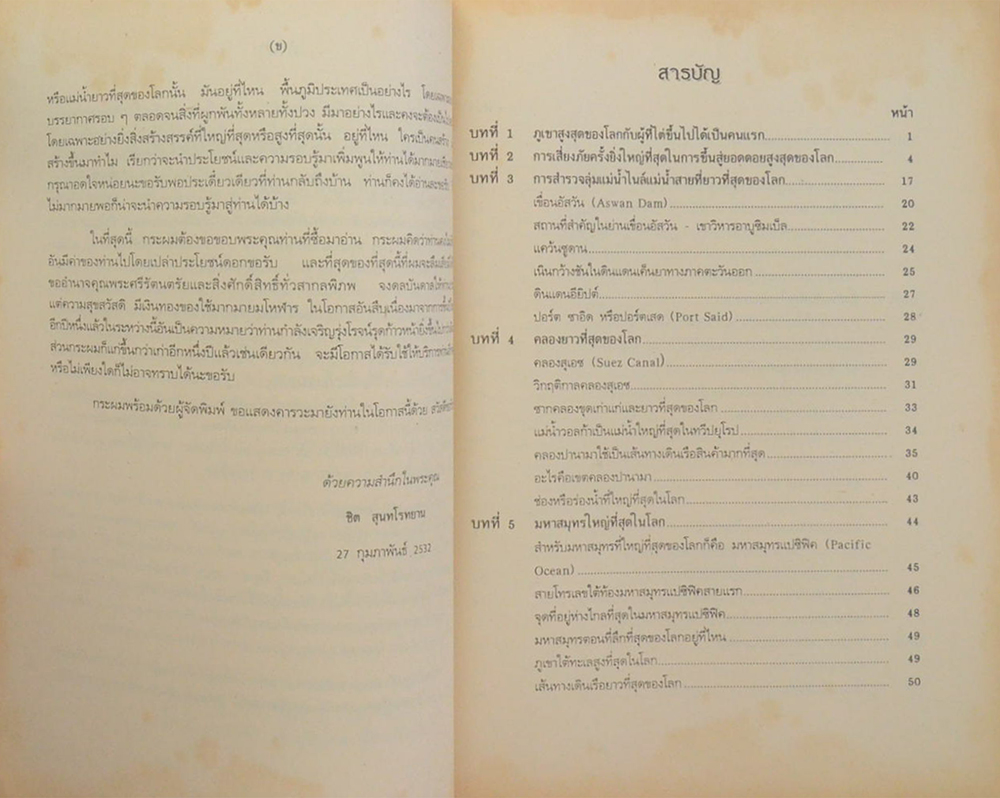 (ข)
หรือแม่น้ำยาวที่สุดของโลกนั้น มันอยู่ที่ไหน พื้นภูมิประเทศเป็นอย่างไร
บรรยากาศรอบ ๆ ตลอดจนสิ่งที่ผูกพันทั้งหลายทั้งปวง มีมาอย่างไรและคงจะต้อง
โดยเฉพาะอย่างยิ่งสิ่งสร้างสรรค์ที่ใหญ่ที่สุดหรือสูงที่สุดนั้น อยู่ที่ไหน ใครเป็นคนสร้าง
สร้างขึ้นมาทำไม เรียกว่าจะนำประโยชน์และความรอบรู้มาเพิ่มพูนให้ท่านได้มากมาย
กรุณาอดใจหน่อยนะขอรับพอประเดี๋ยวเดียวที่ท่านกลับถึงบ้าน ท่านก็คงได้อ่าน
ไม่มากมายพอก็น่าจะนำความรอบรู้มาสู่ท่านได้บ้าง
ในที่สุดนี้ กระผมต้องขอขอบพระคุณท่านที่ซื้อมาอ่าน กระผมคิดว่าท่านคง
อันมีค่าของท่านไปโดยเปล่าประโยชน์ดอกขอรับ และที่สุดของที่สุดนี้ที่ผมจะลืม
ขออำนาจคุณพระศรีรัตนตรัยและสิ่งศักดิ์สิทธิ์ทั่วสากลพิภพ จงดลบันดาลให้ท่าน
แต่ความสุขสวัสดิ มีเงินทองของใช้มากมายมโหฬาร ในโอกาสอันสืบเนื่องมาจากการ
อีกปีหนึ่งแล้วในระหว่างนี้อันเป็นความหมายว่าท่านกำลังเจริญรุ่งโรจน์รุดก้าวหน้ายิ่งขึ้น
ส่วนกระผมก็แก่ขึ้นกว่าเก่าอีกหนึ่งปีแล้วเช่นเดียวกัน จะมีโอกาสได้รับใช้ให้บริการท่าน
หรือไม่เพียงใดก็ไม่อาจทราบได้นะขอรับ
กระผมพร้อมด้วยผู้จัดพิมพ์ ขอแสดงคารวะมายังท่านในโอกาสนี้ด้วย
ด้วยความสำนึกในพระคุณ
ชิต สุนทโรทยาน
27 กุมภาพันธ์ 2532
สารบัญ
หน้า
บทที่ 1 ภูเขาสูงสุดของโลกกับผู้ที่ได้ขึ้นไปได้เป็นคนแรก 1
บทที่ 2 การเสี่ยงภัยครั้งยิ่งใหญ่ที่สุดในการขึ้นสู่ยอดดอยสูงสุดของโลก 4
บทที่ 3 การสำรวจลุ่มแม่น้ำไนล์แม่น้ำสายที่ยาวที่สุดของโลก 17
เขื่อนอัสวัน (Aswan Dam) 20
สถานที่สำคัญในย่านเขื่อนอัสวัน - เขาวิหารอาบูซิมเบิ้ล 22
แคว้นซูดาน 24
เนินกว้างชันในดินแดนเค็นยาทางภาคตะวันออก 25
ดินแดนอียิปต์ 27
ปอร์ต ซาอิด หรือปอร์ตเสด (Port Said) 28
บทที่ 4 คลองยาวที่สุดของโลก 29
คลองสุเอซ (Suez Canal) 29
วิกฤติกาลคลองสุเอซ 31
ซากคลองขุดเก่าแก่และยาวที่สุดของโลก 33
แม่น้ำวอลก้าเป็นแม่น้ำใหญ่ที่สุดในทวีปยุโรป 34
คลองปานามาใช้เป็นเส้นทางเดินเรือสินค้ามากที่สุด 35
อะไรคือเขตคลองปานามา 40
ช่องหรือร่องน้ำที่ใหญ่ที่สุดในโลก 43
บทที่ 5 มหาสมุทรใหญ่ที่สุดในโลก 44
สำหรับมหาสมุทรที่ใหญ่ที่สุดของโลกก็คือ มหาสมุทรแปซิฟิค (Pacific
Ocean) 45
สายโทรเลขใต้ท้องมหาสมุทรแปซิฟิคสายแรก 46
จุดที่อยู่ห่างไกลที่สุดในมหาสมุทรแปซิฟิค 48
มหาสมุทรตอนที่ลึกที่สุดของโลกอยู่ที่ไหน 49
ภูเขาใต้ทะเลสูงที่สุดในโลก 49
เส้นทางเดินเรือยาวที่สุดของโลก 50